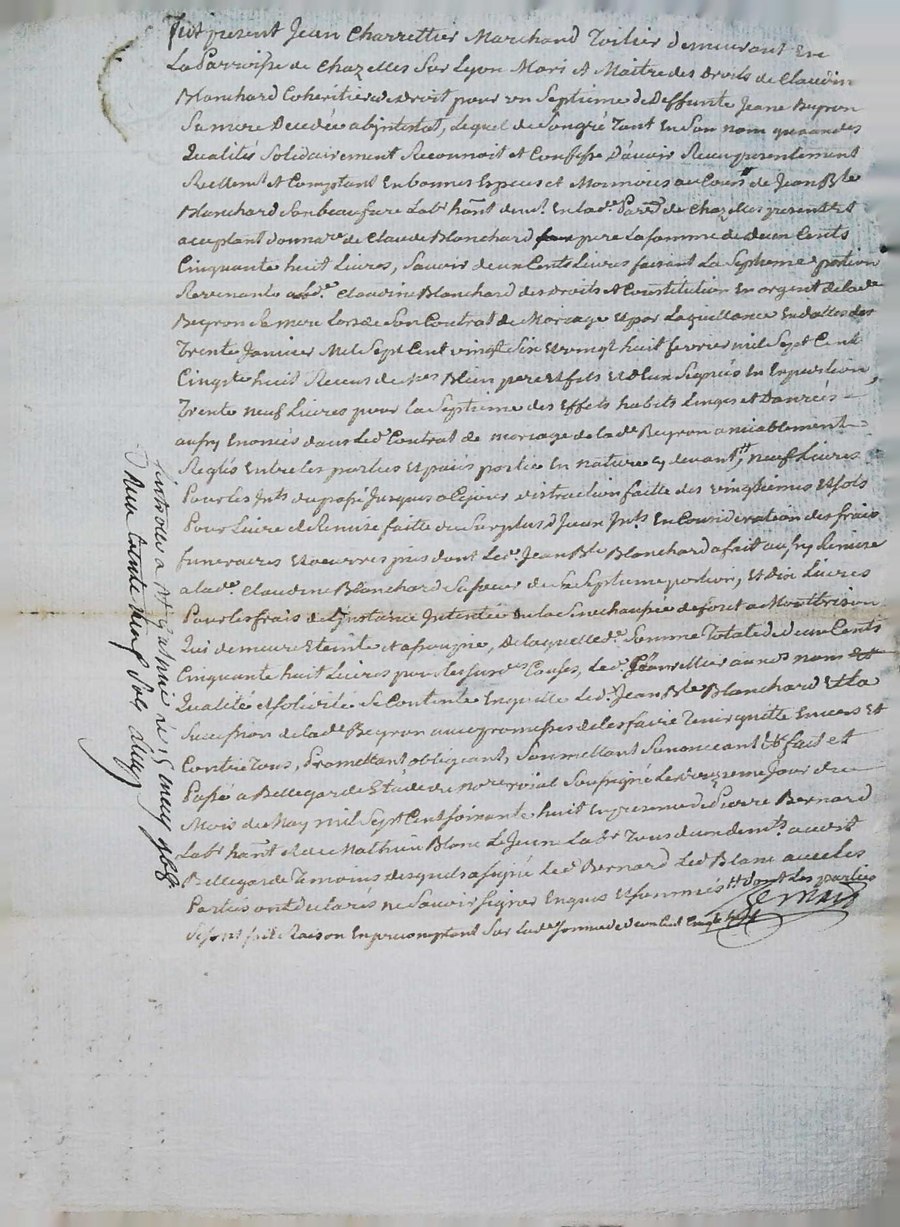 Fut present Jean Charrettier Marchand Toilier demeurant En
La Parroisse de Chazelles Sur Lyon Mari et Maitre des droits de Claudine
Blanchard Coheritiere de droit pour un Septieme de Deffunte Jeane Beyron
Sa mere Decedée abintestat, Lequel de Songré Tant En Son nom quaux des
Qualités Solidairement Reconnoit et Confesse D'avoir Receu presentement
Reellemt et Comptant En bonnes Especes et Monnoies au Cours de Jean Bte
Blanchard Son beaufrere Labr hānt demt En lad.e Par.e de Chazelles present Et
aceptant donnare de Claude Blanchard pere La somme de deux Cents
Cinquante huit Livres, Sauoir deux Cents Livres faisant La Septieme portion
Revenante a lad.e Claudine Blanchard des droits et Constitution En argent de lad.e
Beyron Sa mere Lors de Son Contrat de Mariage Et par La quittance En dattes des
Trente Janvier Mil Sept Cent vingt Six Et vingt huit fevrier mil Sept Cent
Cinqte huit Receus de Blein pere Et fils
Trente neuf Livres pour la Septieme des Effets habits Linges et Danrées
aussy Enoncés dans Led. Contrat de mariage de lad.e Beyron amiablement
Reglés Entre les parties Et paiés partie En nature cy devant, neuf Livres
Pour les Jnts du passé Jusques a Cejour distraction faitte des vingtiemes Et Sols
Pour Livre et Remise faitte du Surplus d'Jceux Jnts En Consideration des frais
funeraires Et oeuvres pies dont Led. Jean Bte Blanchard a fait aussy Remise
a lad.e Claudine Blanchard Sa soeur de Sa Septieme portion, Et dix Livres
Pour les frais de L'Jnstance Jntentée En la Senechaussée de foret a Montbrison
Qui demeure Eteinte et assoupie, De laquelle d.e Somme Totale de deux Cents
Cinquante huit Livres pour les Susd.es Causes, Led. Charrettier aux nes noms Et
Qualité et Solidité Se Contente En quitte Led. Jean Bte Blanchard Et La
Succession de lad.e Beyron avec promesses de les faire Tenir quitte Envers Et
Contre Tous, Promettant obligeant, Soumettant Renonceant &c fait et
Passé a Bellegarde Etude du nore roial Soussigné Le Jour du
Mois de May mil Sept Cent Soixante huit En presence de Pierre Bernard
Labr hānt et de Mathieu Blanc Le Jeune Labr Tous deux demts aud.it
Bellegarde Temoins desquels a signé Led. Bernard Led. Blanc avec les
Parties ont declarés ne Savoir signer Enquis Et Sommés dont Les parties
Se sont fait Raison En precomptant Sur lad.e Somme de deux Cent Cinqte
Bernard
Controlé a St galmier Le 15 may 1768
Reçu Trente neuf Sols